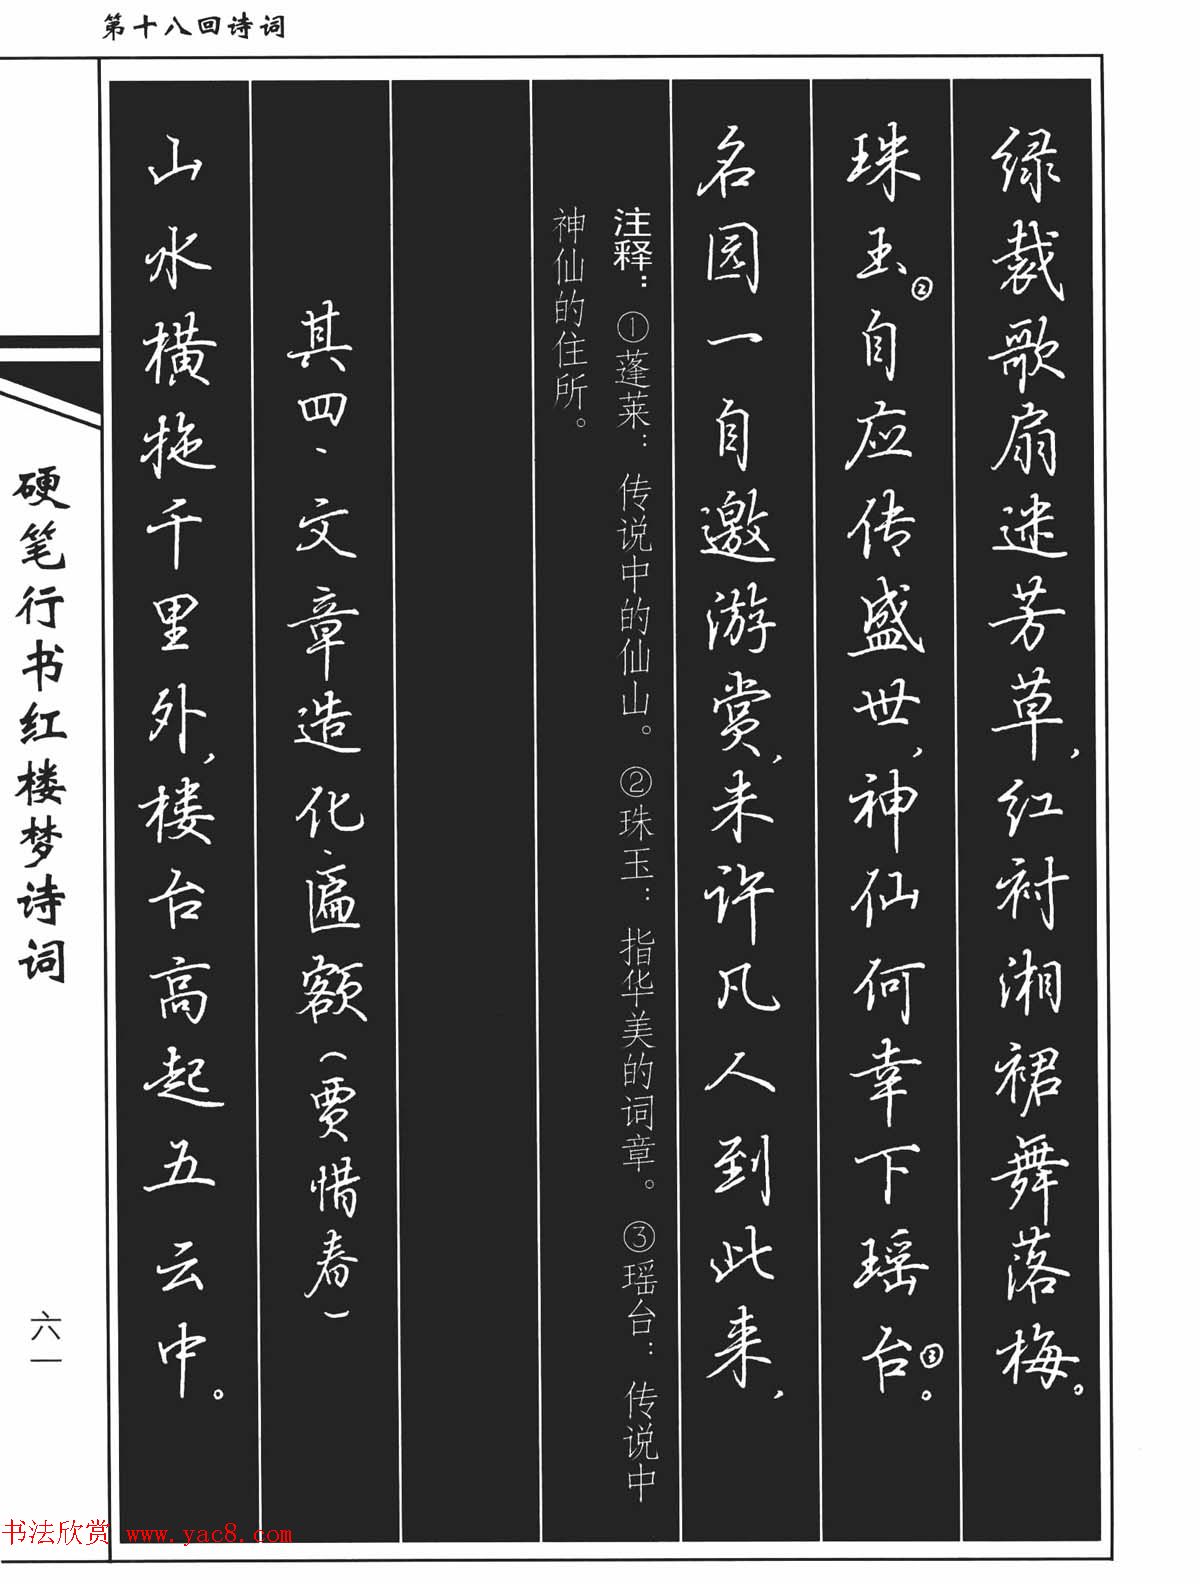 第十八回诗词
绿裁歌扇迷芳草,红衬湘裙舞落梅。
珠玉②自应传盛世,神仙何幸下瑶台③。
名园一自邀游赏,未许凡人到此来,
注释：①蓬莱：传说中的仙山。②珠玉：指华美的词章。③瑶台：传说中
神仙的住所。
其四、文章造化匾额(贾惜春)
山水横拖千里外,楼台高起五云中。
硬笔行书红楼梦诗词
六一
书法欣赏 www.yac8.com